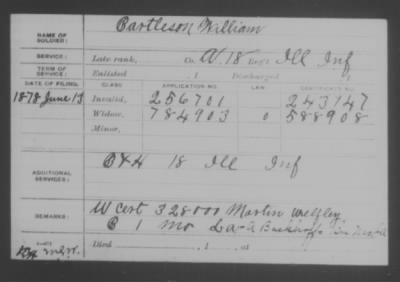 NAME OF SOLDIER: Bartleson William
SERVICE: Late rank, Co. A. 18 Reg't Ill Inf
TERM OF SERVICE: Enlisted , 1 Discharged , 1
DATE OF FILING. CLASS APPLICATION NO. LAW. CERTIFICATE NO.
1878 June 13 Invalid, 256701 243147
Widow, 784903 0 588908
Minor,
ADDITIONAL SERVICES: 18 Ill Inf
REMARKS: W Cert 328000 Martin
1 Mo
Died , 1 , at